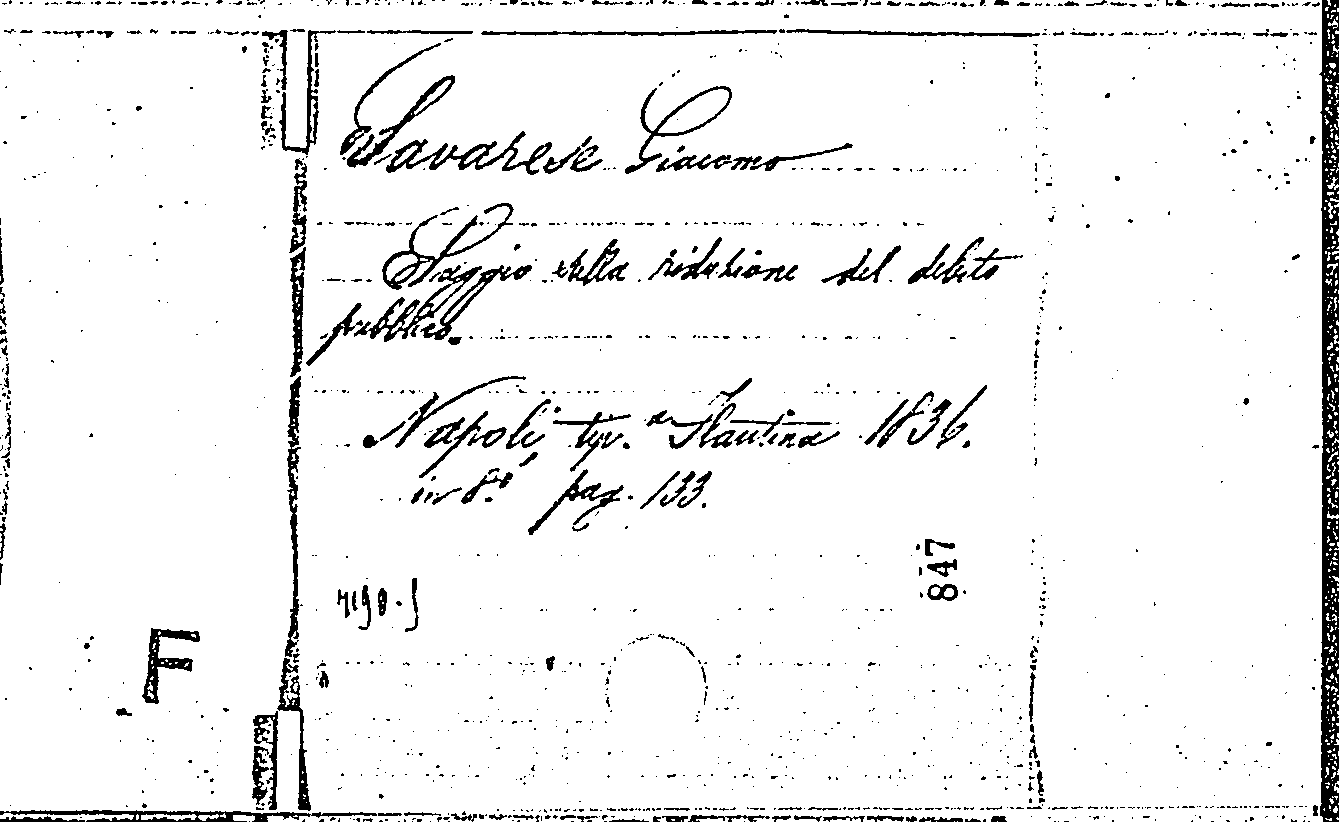 Savarese Giacomo
Saggio sulla riduzione del debito
pubblico.
Napoli, tip. Flautina 1836.
in 8.º pag. 133.
847
F